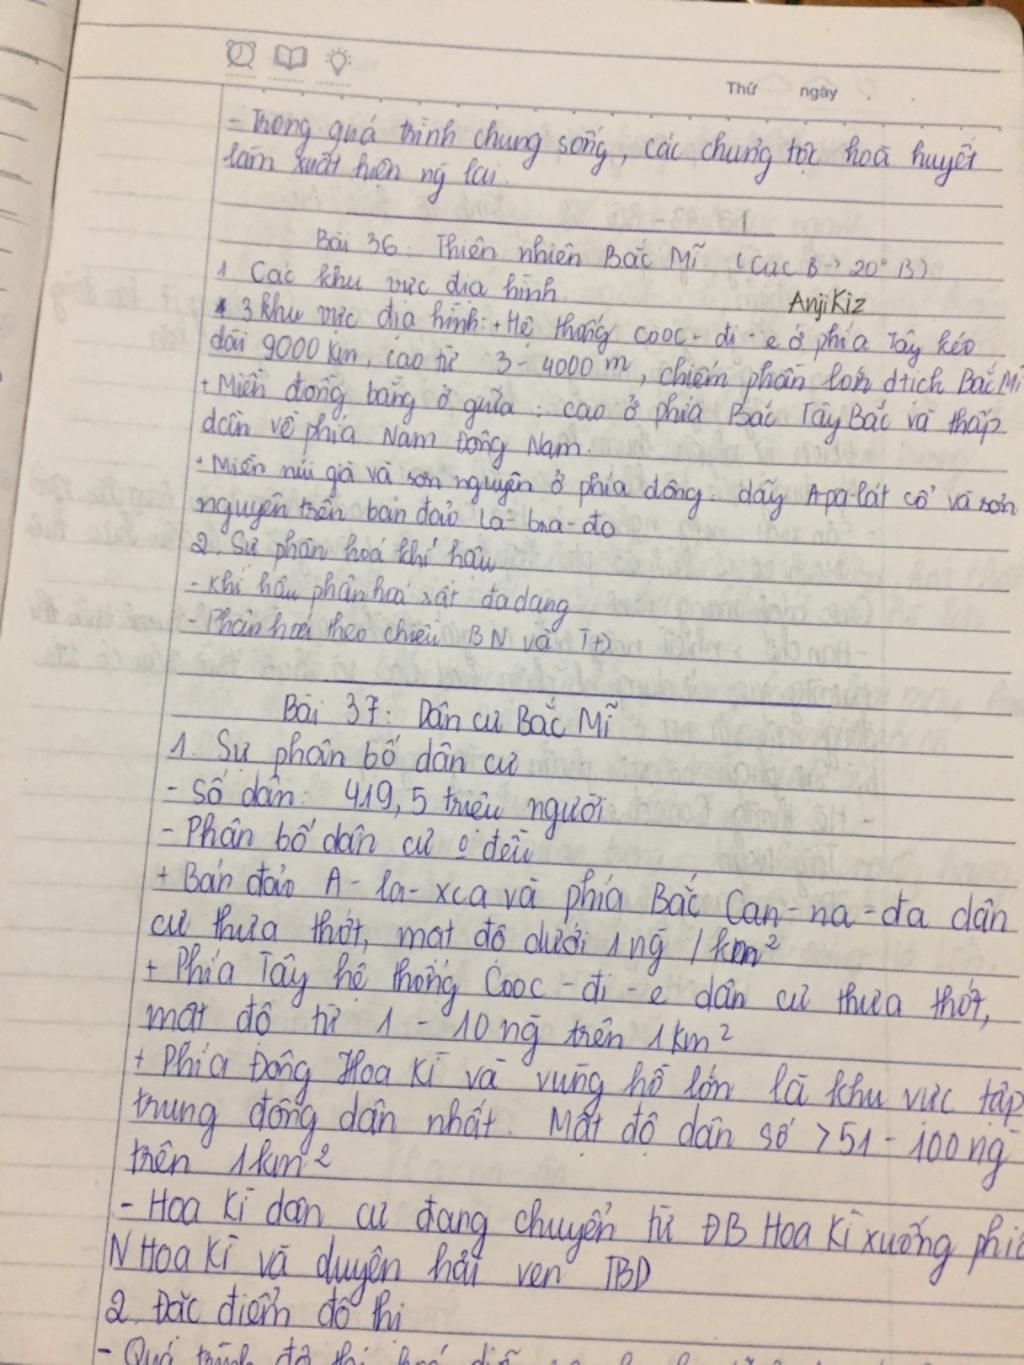 Thứ ngày
- Trong quá trình chung sống, các chủng tộc hoà huyết
làm xuất hiện ng̃ lai.
Bài 36: Thiên nhiên Bắc Mĩ (Cực B → 20° B)
1. Các khu vực địa hình
AnjiKiz
* 3 khu vực địa hình: + Hệ thống cooc-đi-e ở phía Tây kéo
dài 9000 km, cao từ 3-4000 m, chiếm phần lớn dtích Bắc Mĩ
+ Miền đồng bằng ở giữa: cao ở phía Bắc Tây Bắc và thấp
dần về phía Nam Đông Nam.
+ Miền núi già và sơn nguyên ở phía đông: dãy Apa-lát cổ và sơn
nguyên trên bán đảo La-bra-đo
2. Sự phân hoá khí hậu
- Khí hậu phân hoá rất đa dạng
- Phân hoá theo chiều BN và TĐ
Bài 37: Dân cư Bắc Mĩ
1. Sự phân bố dân cư
- Số dân: 419,5 triệu người
- Phân bố dân cư o đều
+ Bán đảo A-la-xca và phía Bắc Can-na-đa dân
cư thưa thớt, mật độ dưới 1 ng̃ / km²
+ Phía Tây hệ thống Cooc-đi-e dân cư thưa thớt,
mật độ từ 1-10 ng̃ trên 1 km²
+ Phía Đông Hoa Kì và vùng hồ lớn là khu vực tập
trung đông dân nhất. Mật độ dân số >51-100 ng̃
trên 1 km²
- Hoa Kì dân cư đang chuyển từ ĐB Hoa Kì xuống phía
N Hoa Kì và duyên hải ven TBD
2. Đặc điểm đô thị
- Quá trình đô thị hoá